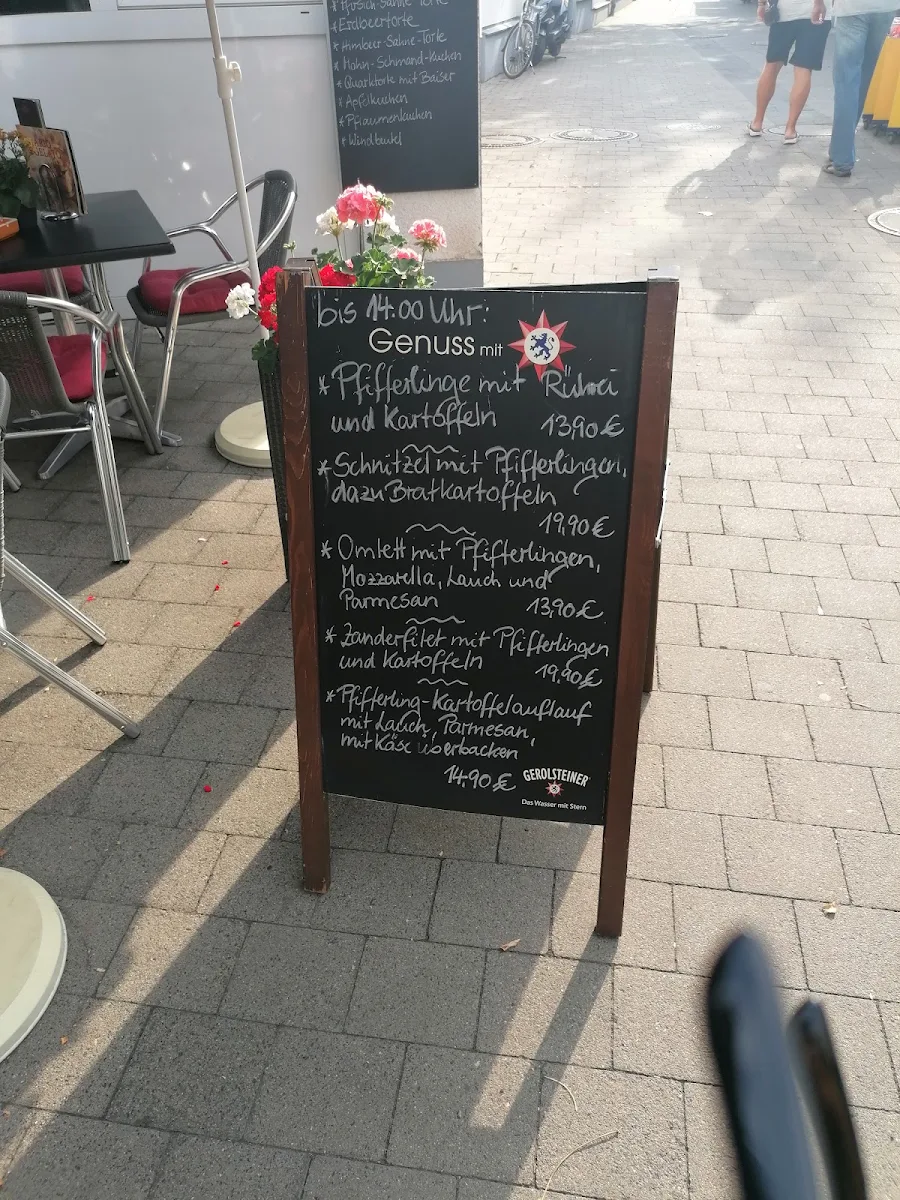 * Pfirsich-Sahne Torte
* Erdbeertorte
* Himbeer-Sahne-Torte
* Mohn-Schmand-Kuchen
* Quarktorte mit Baiser
* Apfelkuchen
* Pflaumenkuchen
* Windbeutel
bis 14.00 Uhr:
Genuss mit
* Pfifferlinge mit Rührei
und Kartoffeln 13,90 €
* Schnitzel mit Pfifferlingen,
dazu Bratkartoffeln
19,90 €
* Omlett mit Pfifferlingen,
Mozzarella, Lauch und
Parmesan 13,90 €
* Zanderfilet mit Pfifferlingen
und Kartoffeln 19,90 €
* Pfifferling-Kartoffelauflauf
mit Lauch, Parmesan,
mit Käse überbacken
14.90 €
GEROLSTEINER
Das Wasser mit Stern